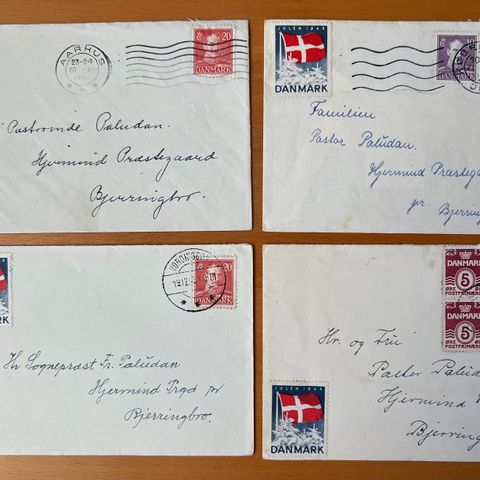 AARHUS
23-24
20
DANMARK
Pastorinde Paludan.
Hjermind Præstegaard
Bjerringbro.
JULEN 1945
DANMARK
DANMARK
Familien
Pastor Paludan.
Hjermind Præstega
pr Bjerring
VORDINGB
19.12.
20
DANMARK
Hr Sognepræst Fr. Paludan
Hjermind Prgd pr
Bjerringbro.
DANMARK
5
ØRE
POSTFRIMÆRKE
5
ØRE
POSTFRIMÆRKE
Hr. og Fru
Pastor Paluda
Hjermind
Bjerring
JULEN 1945
DANMARK